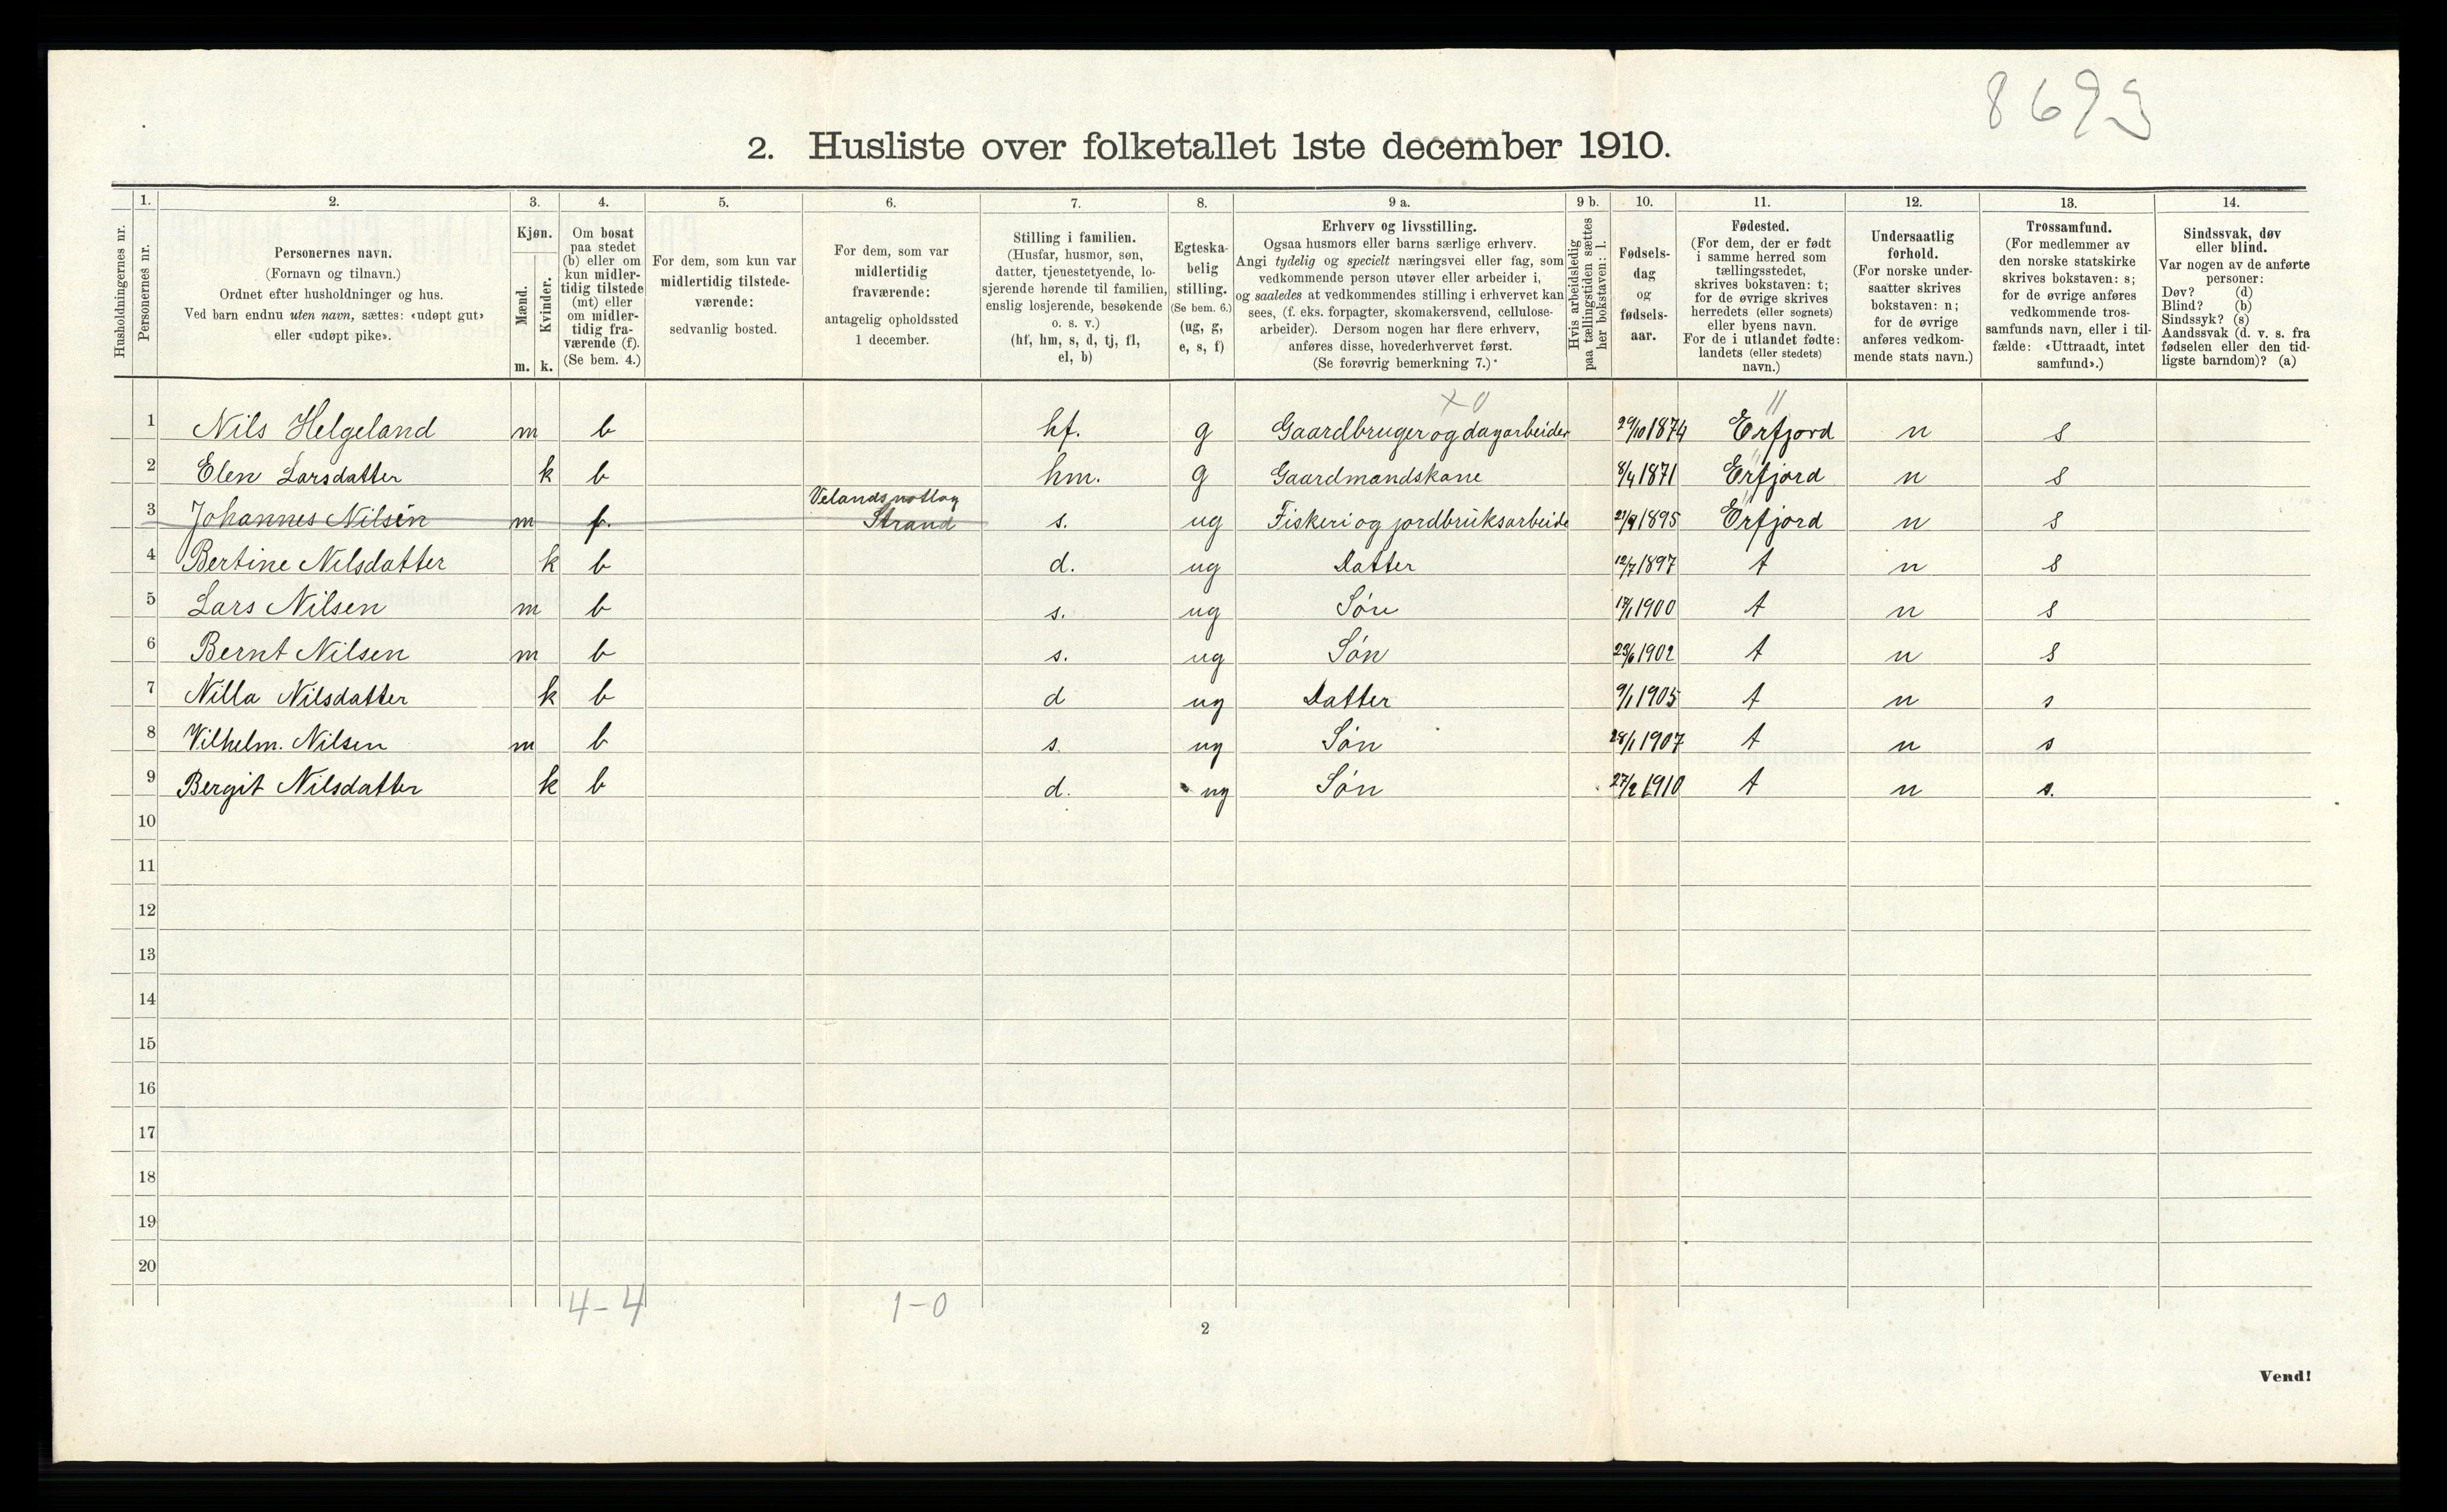 8693
2. Husliste over folketallet 1ste december 1910.
Husholdningernes nr.
1.
Personernes nr.
2.
Personernes navn.
(Fornavn og tilnavn.)
Ordnet efter husholdninger og hus.
Ved barn endnu uten navn, sættes: «udøpt gut»
eller «udøpt pike».
3.
Kjøn.
Mænd.
Kvinder.
m. k.
4.
Om bosat
paa stedet
(b) eller om
kun midler-
tidig tilstede
(mt) eller
om midler-
tidig fra-
værende (f).
(Se bem. 4.)
5.
For dem, som kun var
midlertidig tilstede-
værende:
sedvanlig bosted.
6.
For dem, som var
midlertidig
fraværende:
antagelig opholdssted
1 december.
7.
Stilling i familien.
(Husfar, husmor, søn,
datter, tjenestetyende, lo-
sjerende hørende til familien,
enslig losjerende, besøkende
o. s. v.)
(hf, hm, s, d, tj, fl,
el, b)
8.
Egteska-
belig
stilling.
(Se bem. 6.)
(ug, g,
e, s, f)
9 a.
Erhverv og livsstilling.
Ogsaa husmors eller barns særlige erhverv.
Angi tydelig og specielt næringsvei eller fag, som
vedkommende person utøver eller arbeider i,
og saaledes at vedkommendes stilling i erhvervet kan
sees, (f. eks. forpagter, skomakersvend, cellulose-
arbeider). Dersom nogen har flere erhverv,
anføres disse, hovederhvervet først.
(Se forøvrig bemerkning 7.)
9 b.
Hvis arbeidsledig
paa tællingstiden sættes
her bokstaven: l.
10.
Fødsels-
dag
og
fødsels-
aar.
11.
Fødested.
(For dem, der er født
i samme herred som
tællingsstedet,
skrives bokstaven: t;
for de øvrige skrives
herredets (eller sognets)
eller byens navn.
For de i utlandet fødte:
landets (eller stedets)
navn.)
12.
Undersaatlig
forhold.
(For norske under-
saatter skrives
bokstaven: n;
for de øvrige
anføres vedkom-
mende stats navn.)
13.
Trossamfund.
(For medlemmer av
den norske statskirke
skrives bokstaven: s;
for de øvrige anføres
vedkommende tros-
samfunds navn, eller i til-
fælde: «Uttraadt, intet
samfund».)
14.
Sindssvak, døv
eller blind.
Var nogen av de anførte
personer:
Døv? (d)
Blind? (b)
Sindssyk? (s)
Aandssvak (d. v. s. fra
fødselen eller den tid-
ligste barndom)? (a)
x 0 //
1 Nils Helgeland m b hf. g Gaardbruger og dagarbeider 29/10 1874 Erfjord n s
2 Elen Larsdatter k b hm. g Gaardmandskone 8/4 1871 Erfjord n s
Velandsnotlag
3 Johannes Nilsen m f. Strand s. ug Fiskeri og jordbruksarbeide 21/9 1895 Erfjord n s
4 Bertine Nilsdatter k b d. ug Datter 12/7 1897 t n s
5 Lars Nilsen m b s. ug Søn 1900 t n s
6 Bernt Nilsen m b s. ug Søn 23/6 1902 t n s
7 Nilla Nilsdatter k b d ug Datter 9/1 1905 t n s
8 Vilhelm. Nilsen m b s. ug Søn 28/1 1907 t n s
9 Bergit Nilsdatter k b d. ug Søn 27/2 1910 t n s.
10
11
12
13
14
15
16
17
18
19
20
4-4 1-0
2
Vend!